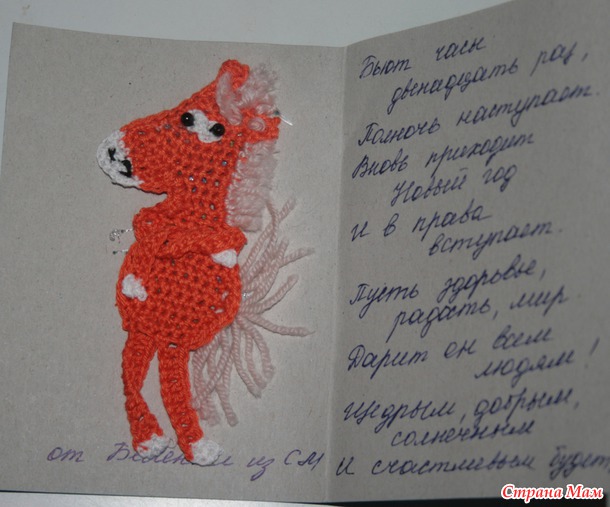 Бьют часы
двенадцать раз,
Полночь наступает.
Вновь приходит
Новый год
и в права
вступает.
Пусть здоровье,
радость, мир.
Дарит он всем
людям!
Щедрым, добрым,
солнечным
И счастливым будет
от из СМ
Страна Мам